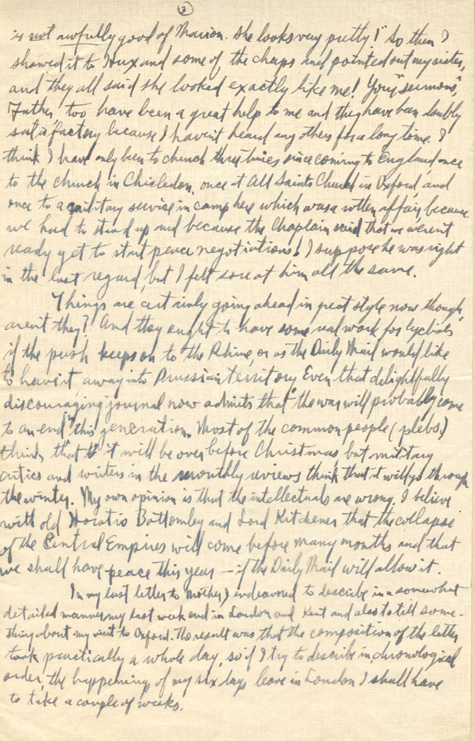 2
is not awfully good of Marion. She looks very pretty!" So then I
showed it to Hux and some of the chaps and pointed out my sister,
and they all said she looked exactly like me! Your "sermons,"
Father, too have been a great help to me and they have been doubly
satisfactory because I haven't heard any others for a long time. I
think I have only been to church three times since coming to England, once
to the church in Chisledon, once at All Saints Church in Oxford, and
once to a military service in camp here which was a rotten affair because
we had to stand up and because the Chaplain said that we weren't
ready yet to start peace negotiations! I suppose he was right
in the last regard, but I felt sore at him all the same.
Things are certainly going ahead in great style now though,
aren't they? And they ought to have some real work for cyclists
if the push keeps on to the Rhine, or as the Daily Mail would like
to have it away into Prussian territory. Even that delightfully
discouraging journal now admits that "the war will probably come
to an end" this generation. Most of the common people (plebs)
think that it will be over before Christmas but military
critics and writers in the monthly reviews think that it will go through
the winter. My own opinion is that the intellectuals are wrong. I believe
with old Horatio Bottomley and Lord Kitchener that the collapse
of the Central Empires will come before many months and that
we shall have peace this year — if the Daily Mail will allow it.
In my last letter to Mother, I endeavored to describe in a somewhat
detailed manner my last week end in London and Kent and also to tell some-
thing about my visit to Oxford. The result was that the composition of the letter
took practically a whole day, so if I try to describe in chronological
order, the happenings of my six days leave in London I shall have
to take a couple of weeks.